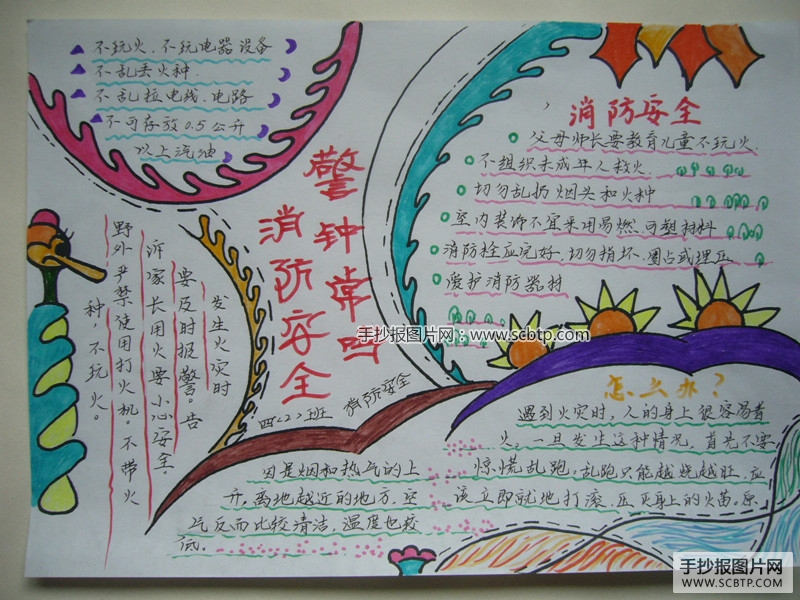 不玩火、不玩电器设备
不乱丢火种.
不乱拉电线、电路
不可存放0.5公升
以上汽油
消防安全
父母师长要教育儿童不玩火.
不组织未成年人救火
切勿乱扔烟头和火种
室内装饰不宜采用易燃、可塑材料
消防栓应完好,切勿指坏、圈占或埋压
爱护消防器材
警钟常鸣
消防安全
四〈2〉班
消防安全
发生火灾时
要及时报警。告
诉家长用火要小心安全。
野外严禁使用打火机。不带火
种,不玩火。
手抄报图片网 www.scbtp.com
怎么办?
遇到火灾时,人的身上很容易着
火。一旦发生这种情况,首先不要
惊慌乱跑,乱跑只能越烧越旺.应
该立即就地打滚.压灭身上的火苗。原
因是烟和热气的上
升,离地越近的地方.空
气反而比较清洁,温度也较
低。
手抄报图片网
WWW.SCBTP.COM